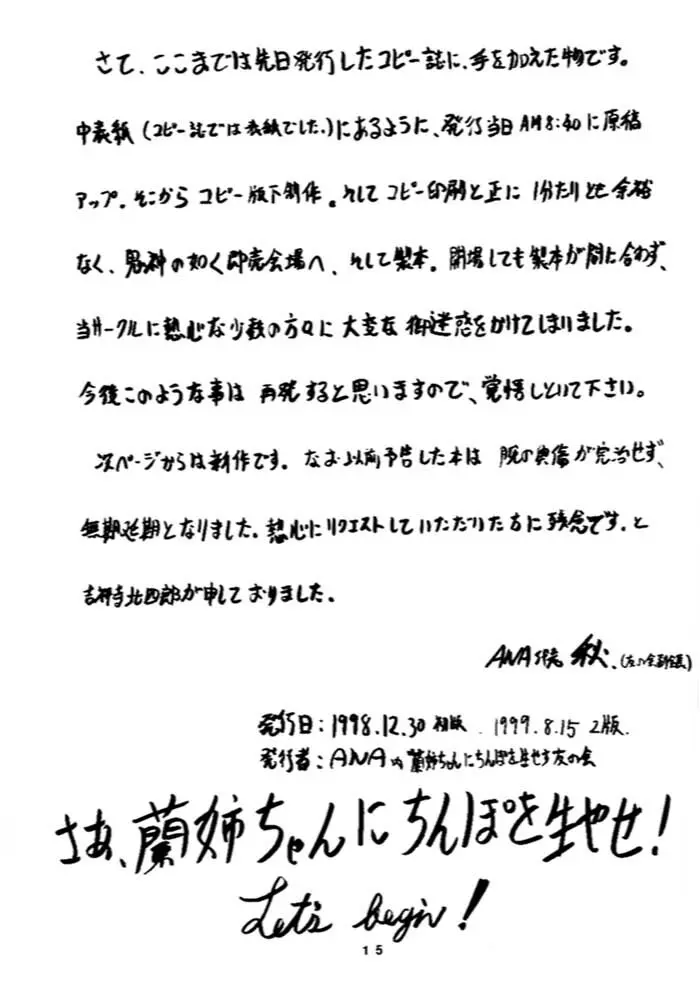 さて、ここまでは先日発行したコピー誌に、手を加えた物です。
中表紙(コピー誌では表紙でした。)にあるように、発行当日AM8:40に原稿
アップ。そこからコピー版下制作。そしてコピー印刷と正に1分たりとも余裕
なく、の如く即売会場へ、そして製本。開場しても製本が間に合わず、
当サークルに熱心な少数の方々に大変な御迷惑をかけてしまいました。
今後このような事は再発すると思いますので、覚悟しといて下さい。
次ページからは新作です。なお以前予告した本は腕のが完治せず、
無期延期となりました。熱心にリクエストしていただいた方に残念です。と
吉祥寺北四郎が申しておりました。
ANA 秋。
発行日:1998.12.30 初版. 1999.8.15 2版.
発行者:ANA内 蘭姉ちゃんにちんぽを生やす友の会
さあ、蘭姉ちゃんにちんぽを生やせ!
Let's begin!
15